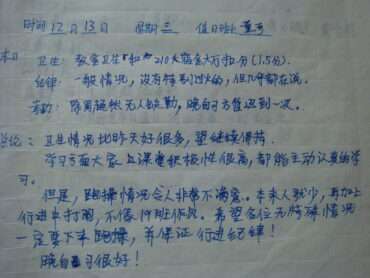 时间 12 月 13 日 星期 三 值日班长
本日 卫生：教室卫生 和 210大宿舍大厅扣分(1.5分).
纪律：一般情况，没有特别过火的，但几乎都在说.
考勤：除周 无人缺勤，晚自习 迟到一次.
总论：卫生情况比昨天好很多，望继续保持.
学习方面大家上课积极性很高，都能主动认真的学
习.
但是，跑操情况令人非常不满意. 本来人就少，再加上
行进中打闹，不像19班作风. 希望各位无特殊情况
一定要下来跑操，并保证行进纪律！
晚自习很好！